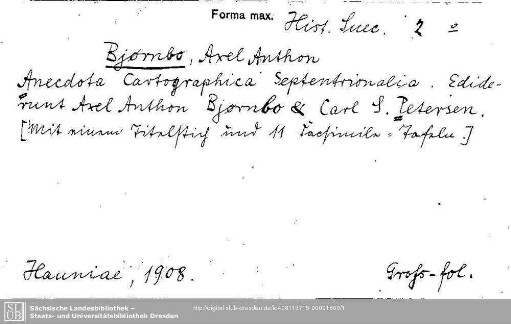 Forma max. Hist. Suec. 2 e
Bjørnbo, Axel Anthon
Anecdota Cartographica Septentrionalia. Edide-
runt Axel Anthon Bjørnbo & Carl S. Petersen.
[Mit einem Titelstich und 11 Facsimile-Tafeln.]
Hauniae, 1908. Gross-fol.
SLUB
Sächsische Landesbibliothek –
Staats- und Universitätsbibliothek Dresden